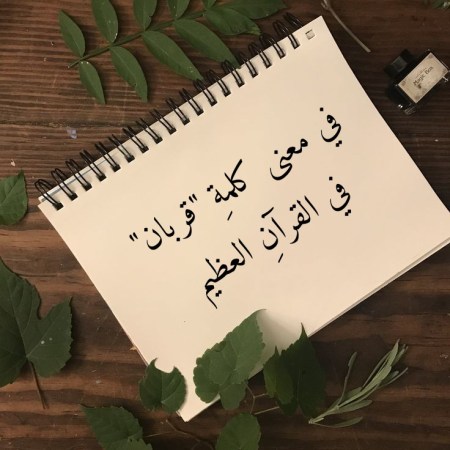 في معنى كلمةِ "قربان"
في القرآنِ العظيم